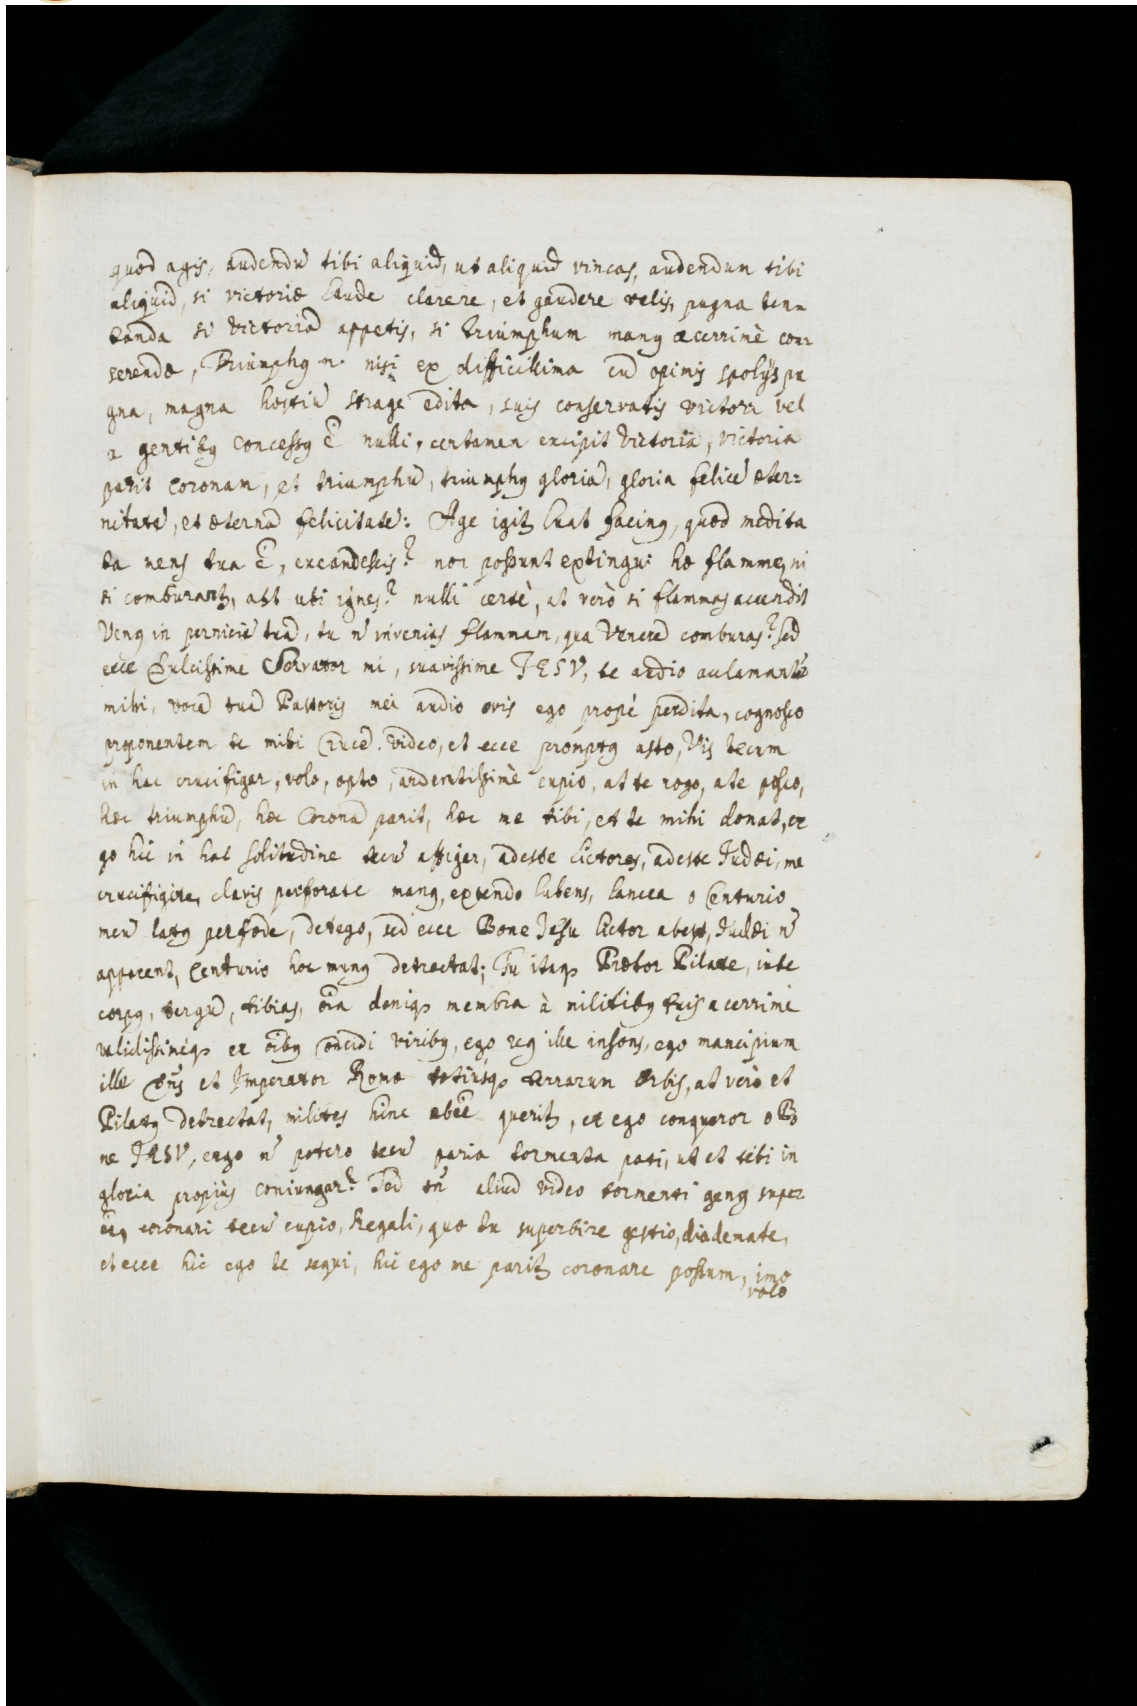 quod agis, audendū tibi aliquid, ut aliquid vincas, audendum tibi
aliquid, si victoriæ laude clarere, et gaudere velis, pugna ten=
tanda si victoriā appetis, si triumphum manꝰ acerrimè con=
serendæ, Triumphꝰ n. nisi ex difficillima cū opimis spolijs pu
gna, magna hostiū strage edita, suis conservatis victori vel
a gentibꝰ concessꝰ ē nulli, certamen excipit victoria, victoria
parit coronam, et triumphū, triumphꝰ gloriā, gloria felicē æter=
nitatē, et æternā felicitatē: Age igitꝝ luat facinꝰ, quod medita
ta mens tua ē, excandescis? non possunt extingui hæ flammæ, ni
si comburantꝝ, ast ubi ignes? nulli certè, at verò si flammas accendit
Venꝰ in perniciē tuā, tu n̄ invenias flammam, qua Venerē comburas? sed
ecce Dulcissime Servator mi, suavissime JESV, te audio acclamantē
mihi, vocē tuā Pastoris mei audio ovis ego propè perdita, cognosco
proponentem te mihi Crucē. video, et ecce promptꝰ asto, Vis tecum
in hac crucifigar, volo, opto, ardentissimè cupio, at te rogo, a te posco,
hæc triumphū, hæc Coronā parit, hæc me tibi, et te mihi donat, er
go hic in hac solitudine tecū affigar, adeste lictores, adeste Judæi, me
crucifigite, clavis perforate manꝰ, extendo lubens, lancea o Centurio
meū latꝰ perfode, detego, sed ecce Bone Jesu lictor abest, Judæi n̄
apparent, Centurio hoc munꝰ detrectat; Tu itaqꝫ Prætor Pilate, iube
corpꝰ, tergū, tibias, oīa deniqꝫ membra à militibꝰ tuis acerrimè
validissimèqꝫ ex oībꝰ concidi viribꝰ, ego reꝰ ille insons, ego mancipium
ille Dn̄s et Imperator Romæ totiusqꝫ terrarum Orbis, at verò et
Pilatꝰ detrectat, milites hinc abēē queritꝝ, et ego conqueror o Bo
ne JESV, ergo n̄ potero tecū paria tormenta pati, ut et tibi in
gloria propiùs coniungar? Sed tn̄ aliud video tormenti genꝰ super
ēē, coronari tecū cupio, Regali, quo tu superbire gestio, diademate,
et ecce hic ego te sequi, hic ego me paritꝝ coronare possum, imo
volo